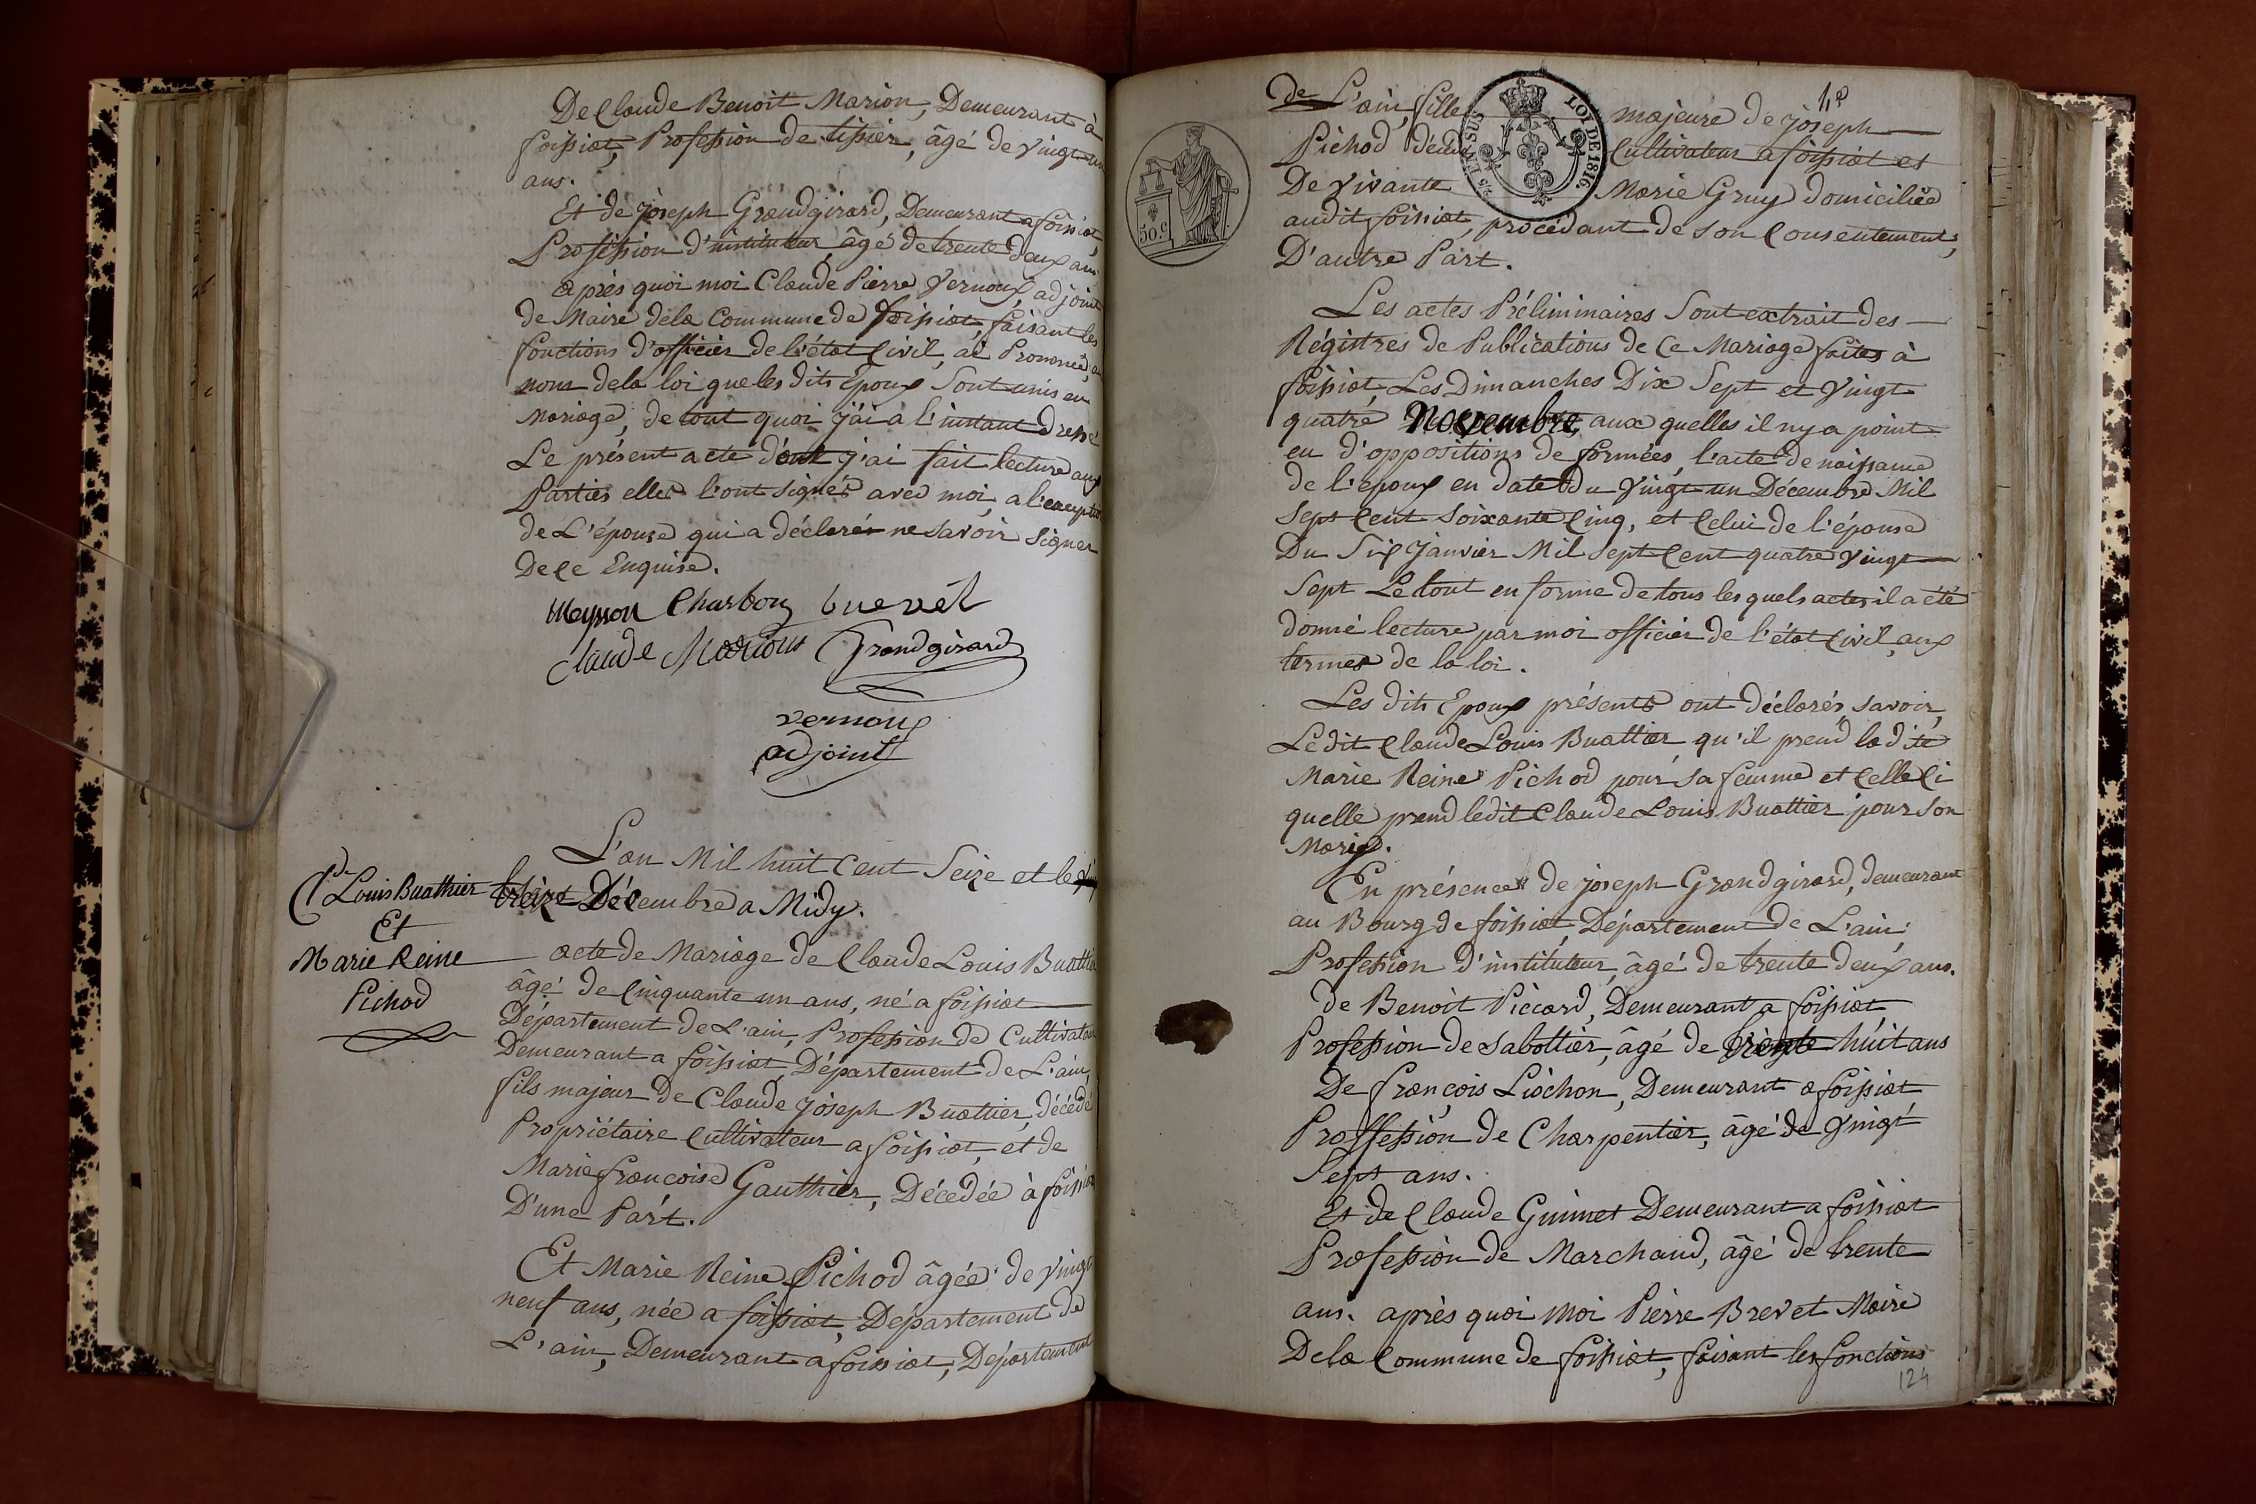 De Claude Benoit Marion, Demeurant à
foissiat, Profession de tissier, âgé de vingt un
ans.
Et de joseph Grandgirard, Demeurant a foissiat,
Profession d'instituteur âgé de trente deux ans
après quoi moi Claude Pierre Vernoux, adjoint
de Maire dela Commune de foissiat, faisant les
fonctions d'officier de l'état Civil, ai Prononcé, au
nom dela loi que les dits Epoux Sont unis en
Mariage, de tout quoi j'ai à l'instant dressé
Le présent acte dont j'ai fait lecture aux
Parties elles l'ont signés avec moi, a l'exception
de L'épouse qui a déclarér ne savoir Signer
De ce Enquise.
Meysson Charbon buevet
Claude Marions Grandgirard
vernoux
adjoint
L'an Mil huit Cent Seize et le
treize Décembre a Midy.
Cde Louis Buathier
Et
Marie Reine
Pichod
acte de Mariage de Claude Louis Buattier
âgé de Cinquante un ans, né a foissiat
Département de L'ain, Profession de Cultivateur
Demeurant a foissiat Département de L'ain,
fils majeur de Claude joseph Buattier, décédé
Propriétaire Cultivateur a foissiat, et de
Marie françoise Gauthier, Décédée à foissiat
D'une Part.
Et Marie Reine Pichod âgée de vingt
neuf ans, née a foissiat, Département de
L'ain, Demeurant a foissiat, Département
de L'ain, fille majeure de joseph
Pichod décédé Cultivateur a foissiat et
De vivante Marie Gruy domiciliée
audit foissiat, procédant de son Consentement,
D'autre Part.
LOI DE 1816.
EN SUS
50.c
Les actes Préliminaires Sont extrait des
Régistres de Publications de Ce Mariage faites à
foissiat, Les Dimanches Dix Sept et Vingt
quatre Novembre, aux quelles il n'y a point
eu d'oppositions de formées, l'acte de naissance
de l'époux en date du Vingt un Décembre Mil
Sept Cent Soixante Cinq, et Celui de l'épouse
Du Six Janvier Mil Sept Cent quatre Vingt
Sept Le tout en forme de tous les quels actes il a été
donné lecture par moi officier de l'état Civil, aux
termes de la loi.
Les dits Epoux présents ont déclarés savoir,
Le dit Claude Louis Buattier qu'il prend la dite
Marie Reine Pichod pour sa femme et Celle Ci
quelle prend ledit Claude Louis Buattier pour Son
Marie.
En présence de joseph Grandgirard, demeurant
au Bourg de foissiat Département de L'ain
Profession d'instituteur, âgé de trente deux ans.
de Benoit Piccard, Demeurant a foissiat
Profession de sabottier, âgé de trente huit ans
De françois Liochon, Demeurant a foissiat
Proffession de Charpentier, âgé de Vingt
Sept ans.
Et de Claude Guimet Demeurant a foissiat
Profession de Marchand, âgé de trente
ans. après quoi Moi Pierre Brevet Maire
Dela Commune de foissiat, faisant les fonctions
124